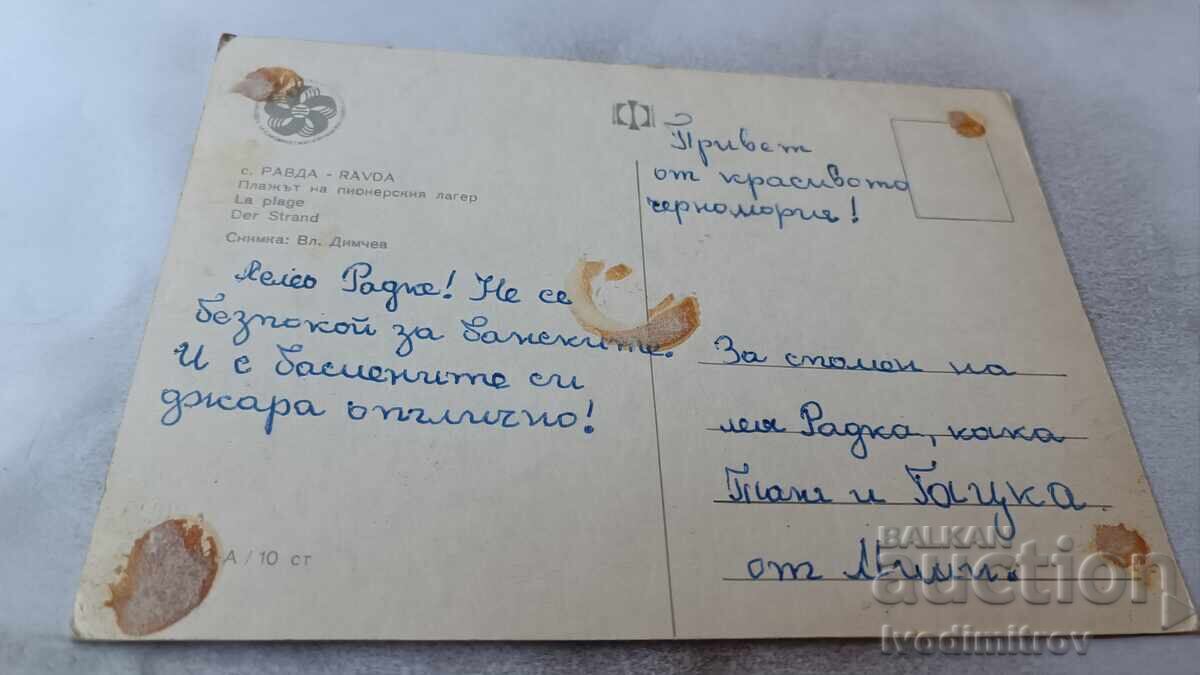 с. РАВДА - RAVDA
Плажът на пионерския лагер
La plage
Der Strand
Снимка: Вл. Димчев
Привет
от красивото
черномория!
Лельо Радке! Не се
безпокой за банските.
И с басмените си
джара отлично!
За спомен на
леля Радка, кака
Таня и Бацка
от Мими.
А / 10 ст
BALKAN
auction
Ivodimitrov